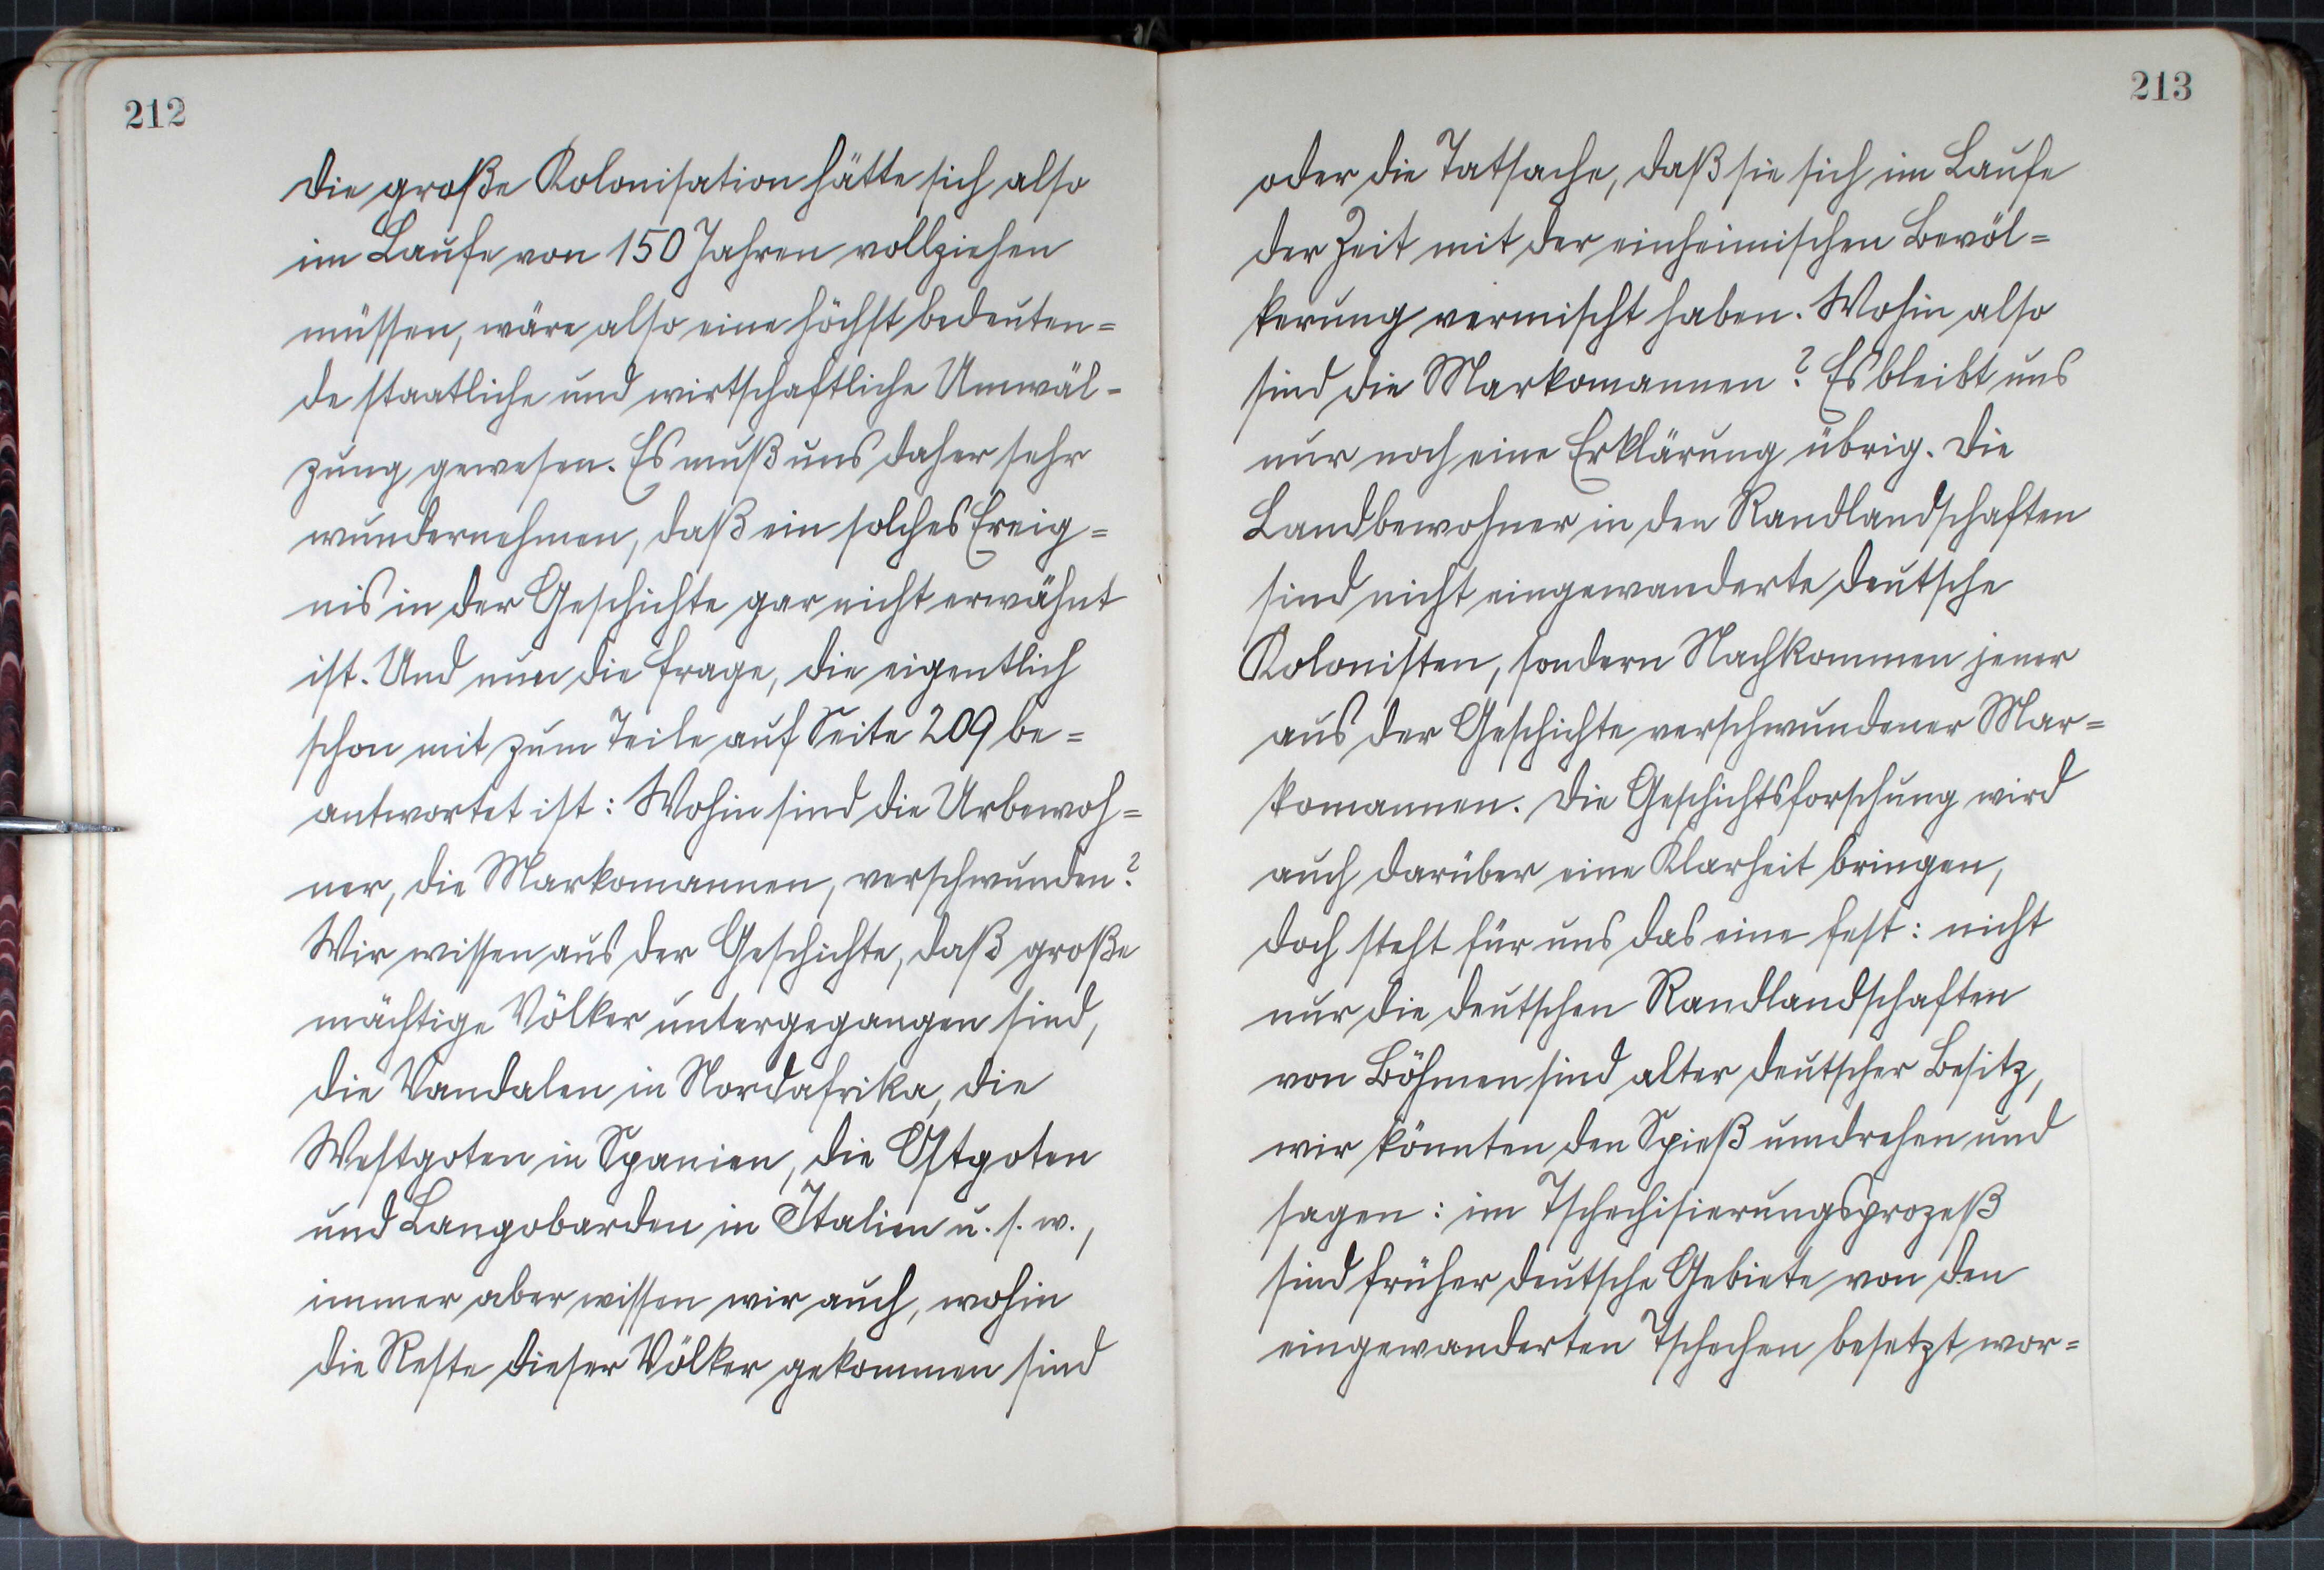 212
Die große Kolonisation hätte sich also
im Laufe von 150 Jahren vollziehen
müssen, wäre also eine höchst bedeuten=
de staatliche und wirtschaftliche Umwäl=
zung gewesen. Es muß uns daher sehr
wundernehmen, daß ein solches Ereig=
nis in der Geschichte gar nicht erwähnt
ist. Und nun die Frage, die eigentlich
schon mit zum Teile auf Seite 209 be=
antwortet ist: Wohin sind die Urbewoh=
ner, die Markomannen, verschwunden?
Wir wissen aus der Geschichte, daß große
mächtige Völker untergegangen sind,
die Vandalen in Nordafrika, die
Westgoten in Spanien, die Ostgoten
und Langobarden in Italien u. s. w.,
immer aber wissen wir auch, wohin
die Reste dieser Völker gekommen sind
213
oder die Tatsache, daß sie sich im Laufe
der Zeit mit der einheimischen Bevöl=
kerung vermischt haben. Wohin also
sind die Markomannen? Es bleibt uns
nur noch eine Erklärung übrig. Die
Landbewohner in den Randlandschaften
sind nicht eingewanderte deutsche
Kolonisten, sondern Nachkommen jener
aus der Geschichte verschwundener Mar=
komannen. Die Geschichtsforschung wird
auch darüber eine Klarheit bringen,
doch steht für uns das eine fest: nicht
nur die deutschen Randlandschaften
von Böhmen sind alter deutscher Besitz,
wir könnten den Spieß umdrehen und
sagen: im Tschechisierungsprozeß
sind früher deutsche Gebiete von den
eingewanderten Tschechen besetzt wor=